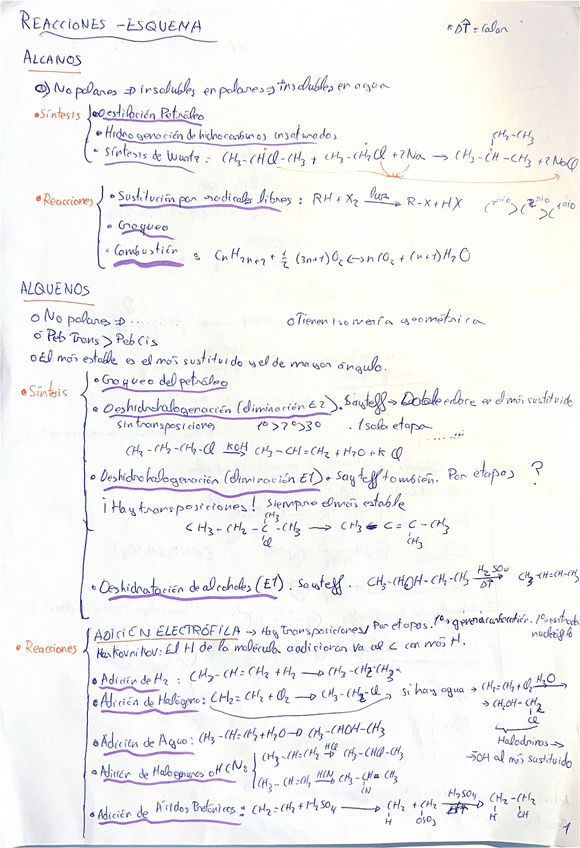 REACCIONES - ESQUEMA
ΔT = Calor
ALCANOS
No polares ⇒ insolubles en polares ⇒ insolubles en agua
• Síntesis
• Destilación Petróleo
• Hidrogenación de hidrocarburos insaturados
CH₂-CH₃
• Síntesis de Wurtz : CH₃-CHCl-CH₃ + CH₃-CH₂Cl + 2Na → CH₃-CH-CH₃ + 2NaCl
• Reacciones
• Sustitución por radicales libres : RH + X₂ luz→ R-X + HX
• Craqueo
• Combustión : CnH2n+2 + 1/2 (3n+1)O₂ ↔ nCO₂ + (n+1)H₂O
ALQUENOS
o No polares ⇒ ...
o Tienen isomería geométrica
o Peb Trans > Peb Cis
o El más estable es el más sustituido y el de mayor ángulo.
• Síntesis
• Craqueo del petróleo
• Deshidrohalogenación (eliminación E2). Sayteff → Doble enlace en el más sustituido
sin transposiciones 1º>2º>3º . 1 sola etapa
CH₃-CH₂-CH₂-Cl KOH→ CH₃-CH=CH₂ + H₂O + KCl
• Deshidrohalogenación (eliminación E1) • Sayteff también. Por etapas ?
¡Hay transposiciones! Siempre el más estable
CH₃
CH₃-CH₂-C-CH₃ → CH₃ C=C-CH₃
Cl CH₃
• Deshidratación de alcoholes (E1). Sayteff. CH₃-CHOH-CH₂-CH₃ H₂SO₄ ΔT→ CH₃-CH=CH-CH₃
• Reacciones
ADICIÓN ELECTRÓFILA → Hay Transposiciones / Por etapas. 1º genera carbocatión. 1º entrada
nucleófilo
Markovnikov: El H de la molécula a adicionar va al C con más H.
• Adición de H₂ : CH₃-CH=CH₂ + H₂ → CH₃-CH₂-CH₃
• Adición de Halógeno: CH₂=CH₂ + Cl₂ → CH₂-CH₂-Cl si hay agua → CH₂=CH₂ + Cl₂ H₂O→
→ CH₂OH-CH₂
Cl
• Adición de Agua: CH₃-CH=CH₂+H₂O → CH₃-CHOH-CH₃
Halodrinas →
→ OH al más sustituido
CH₃-CH=CH₂ HCl→ CH₃-CHCl-CH₃
• Adición de Halogenuros o HCN
CH₃-CH=CH₂ HCN→ CH₃-CH-CH₃
CN
• Adición de Ácidos Protónicos : CH₂=CH₂ + H₂SO₄ → CH₂ + CH₂ H₂SO₄→ CH₂-CH₂
H OSO₃ H OH
1